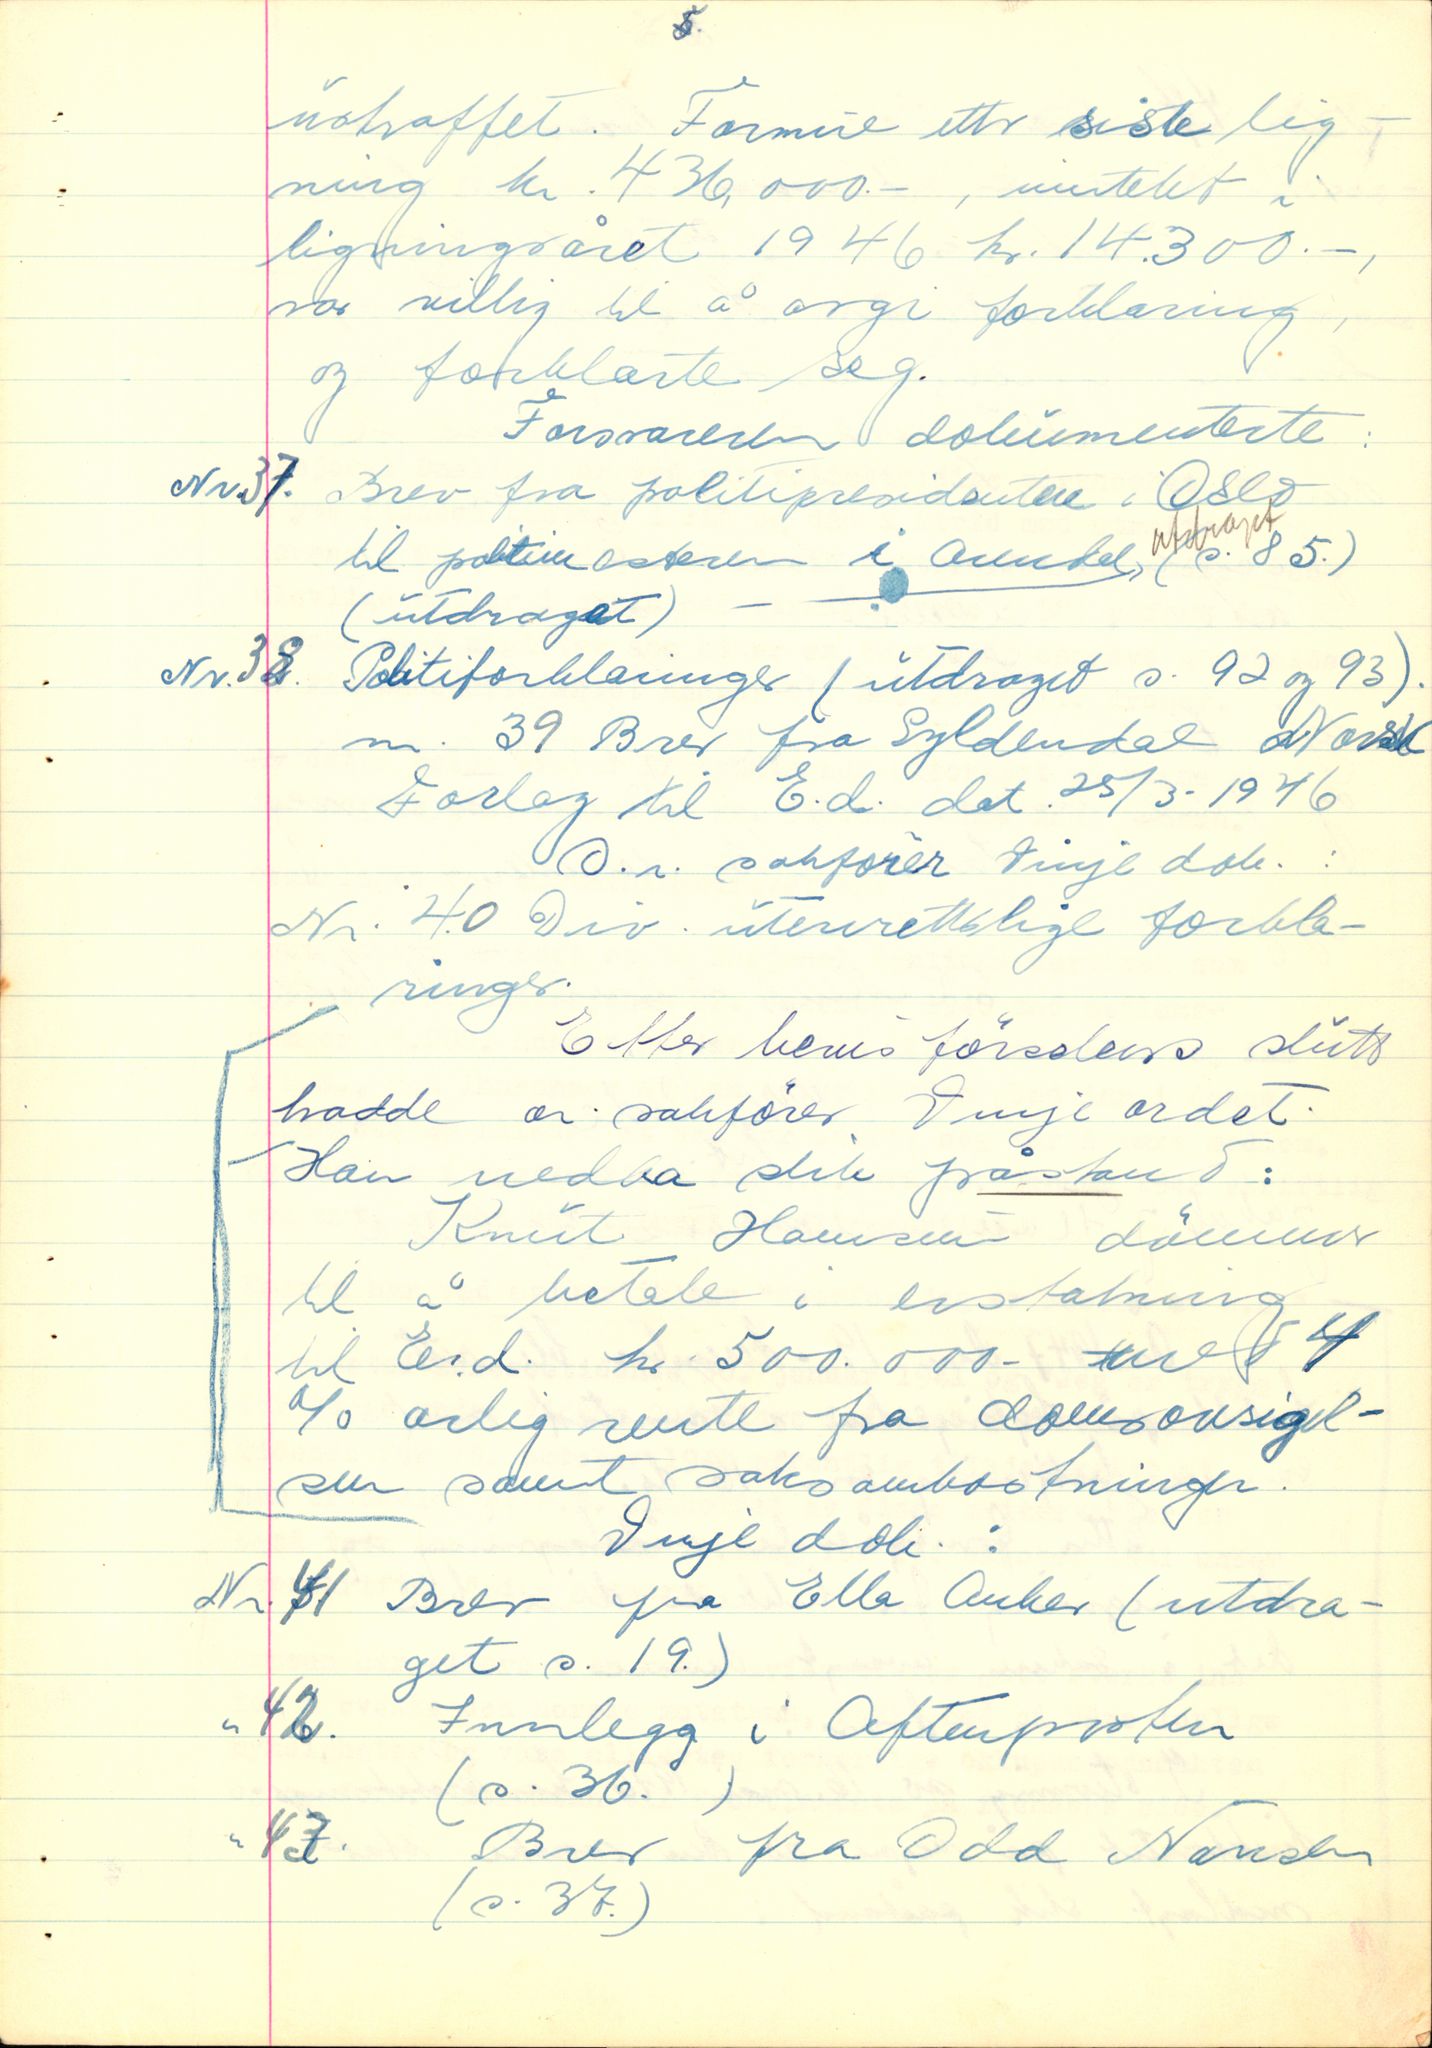 5.
ustraffet. Formue ettr siste lig-
ning kr. 436,000.-, inntekt i
ligningsåret 1946 kr. 14.300.-,
var villig til å avgi forklaring,
og forklarte seg.
Forsvareren dokumenterte:
Nr. 37. Brev fra politipresidenten i Oslo
utdraget
til politimesteren i Arendal, (s. 85.)
(utdraget) -
Nr. 38. Politiforklaringer (utdraget s. 92 og 93).
nr. 39 Brev fra Gyldendal Norsk
Forlag til E.d. dat. 25/3-1946
O.r. sakfører Vinje dok. :
Nr. 40 Div. utenrettslige forkla-
ringer.
Etter bevisførselens slutt
hadde o.r. sakfører Vinje ordet.
Han nedla slik påstand:
Knut Hamsun dömmes
til å betale i erstatning
til E.d. kr. 500.000- med 4
% årlig rente fra domsavsigel-
sen samt saksomkostninger.
Vinje dok. :
Nr. 41 Brev fra Ella Anker (utdra-
get s. 19.)
" 42. Innlegg i Aftenposten
(s. 36. )
" 43. Brev fra Odd Nansen
(s. 37.)